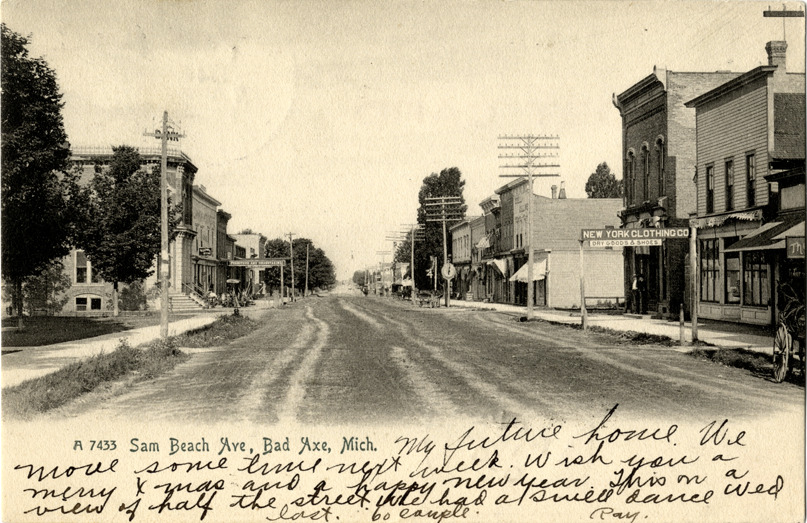 NEW YORK CLOTHING CO.
DRY GOODS & SHOES
A 7433 Sam Beach Ave, Bad Axe, Mich. My future home. We
move some time next week. Wish you a
merry Xmas and a happy new year. This on a
view of half the street. We had a swell dance Wed
last. 60 couple. Ray.